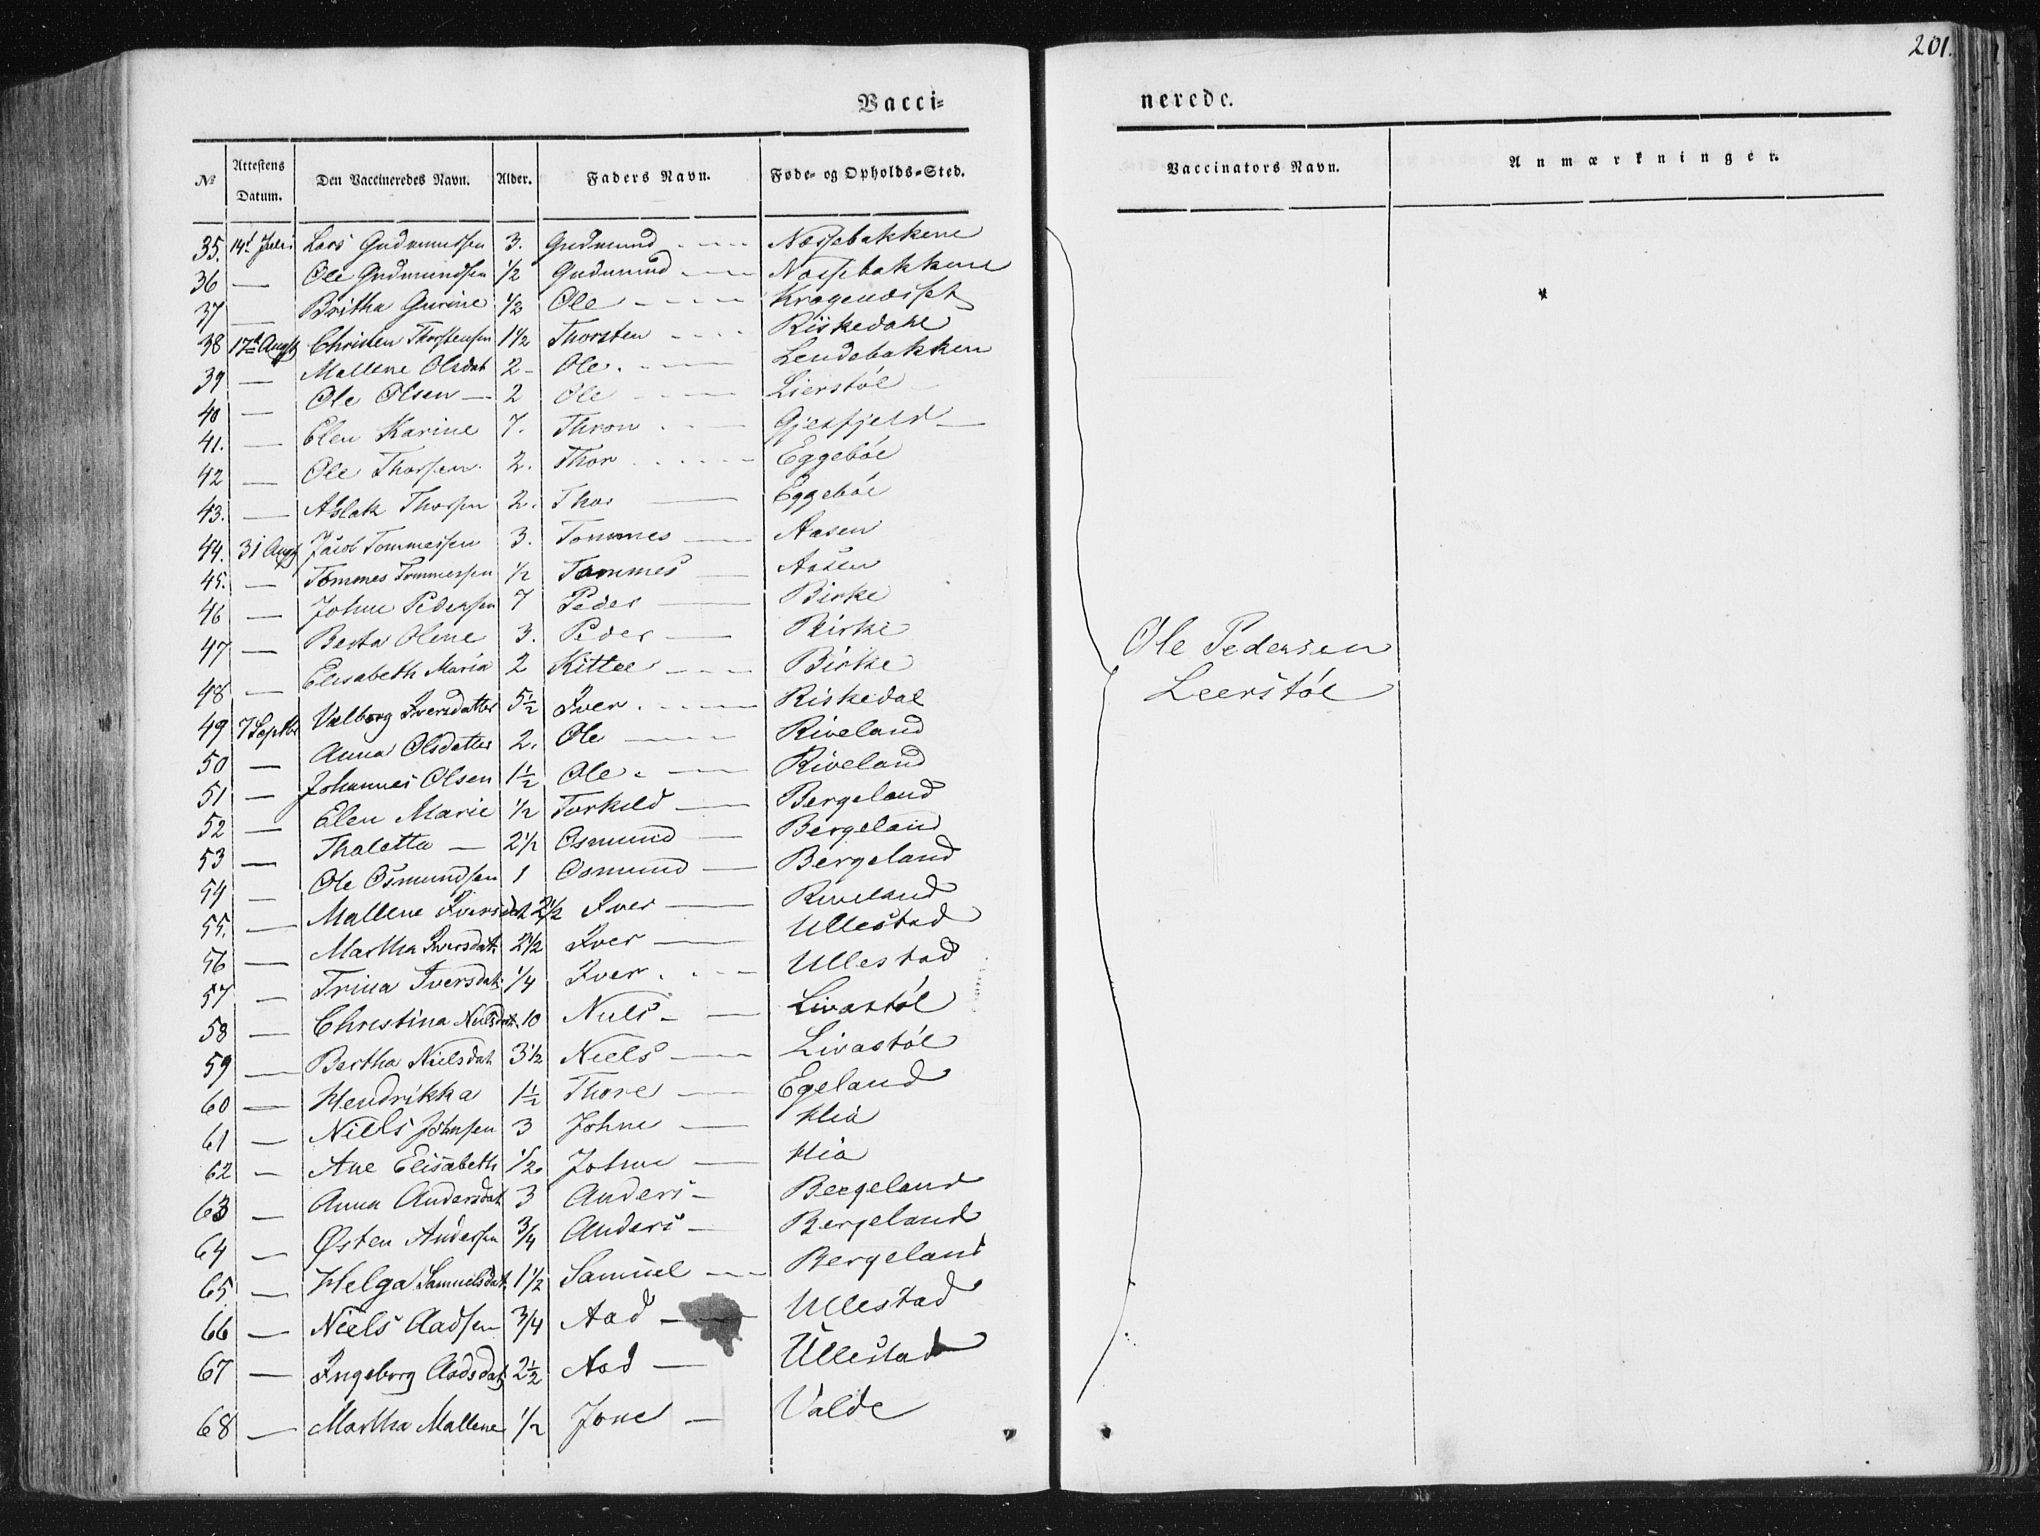 201.
Vacci= nerede.
No Attestens Datum. Den Vaccineredes Navn. Alder. Faders Navn. Føde- og Opholds-Sted. Vaccinators Navn. Anmærkninger.
35. 14d Juli Lars Gudmundsen 3. Gudmund Nossebakkene
36 — Ole Gudmundsen 1/2 Gudmund Nossebakkene
37 — Britha Gurine 1/2 Ole
38 17d Augst Christen Thorstensen 1 1/2 Thorsten Riskedahl
39 — Mallene Olsdat 2 Ole Lendebakken
40 — Ole Olsen — 2 Ole Lierstøl
41. — Elen Karine 7. Thron Gjesfjeld —
42 — Ole Thorsen 2. Thor Eggebøe
43. — Aslak Thorsen 2. Thor — Eggebøe
44. 31 Augst Jacob Tommessen 3. Tommes — Aasen
45. — Tommes Tommessen 1/2 Tommes — Aasen
46 — Johne Pedersen 7 Peder — Birke
47 — Berta Olene 3. Peder — Birke
48 — Elisabeth Maria 2 Kittel Birke
49 7 Septbr Valborg Iversdatter 5 1/2 Iver Riskedal
50 — Anna Olsdatter 2. Ole Riveland
51 — Johannes Olsen 1 1/2 Ole Riveland
52 — Elen Marie 1/2 Torkild — Bergeland
53 — Thaletta — 2 1/2 Osmund — Bergeland
54 — Ole Osmundsen 1 Osmund — Bergeland
55. — Mallene Iversdat 2 1/2 Iver — Riveland
56 — Martha Iversdat 2 1/2 Iver — Ullestad
57 — Trina Iversdat 1/4 Iver Ullestad
58 — Christina Nielsdat 10 Niels Livastøl
59 — Bertha Nielsdat 3 1/2 Niels — Livastøl
60 — Hendrikka 1 1/2 Thore — Egeland
61 — Niels Johnsen 3 Johne — Hia
62 — Ane Elisabeth 1/2 Johne — Hia
63 — Anna Andersdat 3 Anders — Bergeland
64 — Østen Andersen 3/4 Anders — Bergeland
65. — Helga Samuelsdat 1 1/2 Samuel — Bergeland
66 — Niels Aadsen 3/4 Aad — Ullestad
67 — Ingeborg Aadsdat 2 1/2 Aad — Ullestad
68 — Martha Mallene 1/2 Jone — Valde
Ole Pedersen
Leerstøl